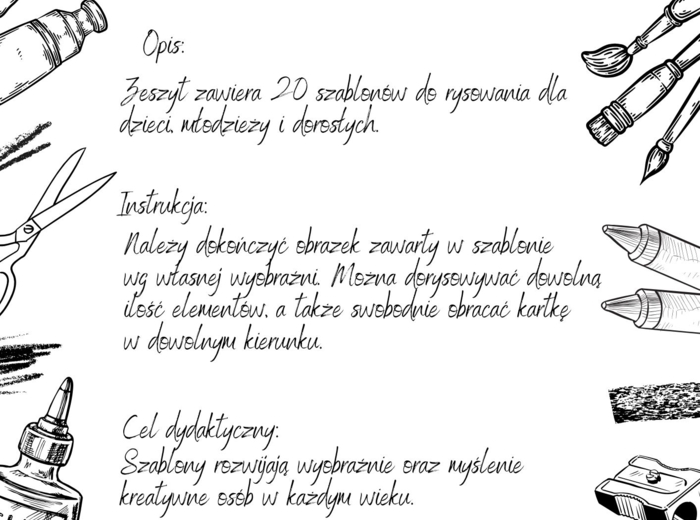 Opis:
Zeszyt zawiera 20 szablonów do rysowania dla
dzieci, młodzieży i dorosłych.
Instrukcja:
Należy dokończyć obrazek zawarty w szablonie
wg własnej wyobraźni. Można dorysowywać dowolną
ilość elementów, a także swobodnie obracać kartkę
w dowolnym kierunku.
Cel dydaktyczny:
Szablony rozwijają wyobraźnie oraz myślenie
kreatywne osób w każdym wieku.